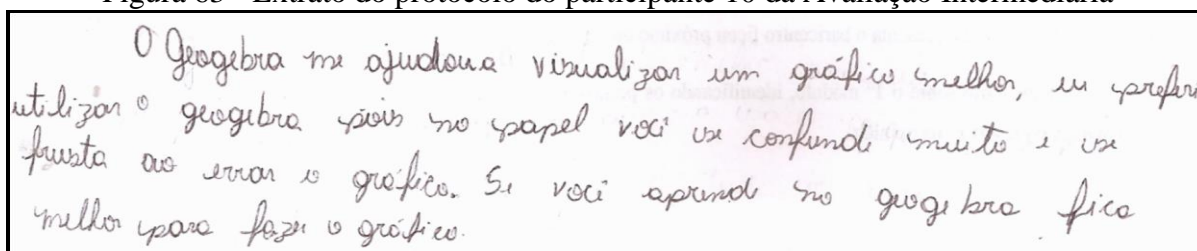 Figura 83 - Extrato do protocolo do participante 16 da Avaliação Intermediária
O Geogebra me ajudou a visualizar um gráfico melhor, eu preferi
utilizar o geogebra pois no papel você se confunde muito e se
frusta ao errar o gráfico. Se você aprende no geogebra fica
melhor para fazer o gráfico.